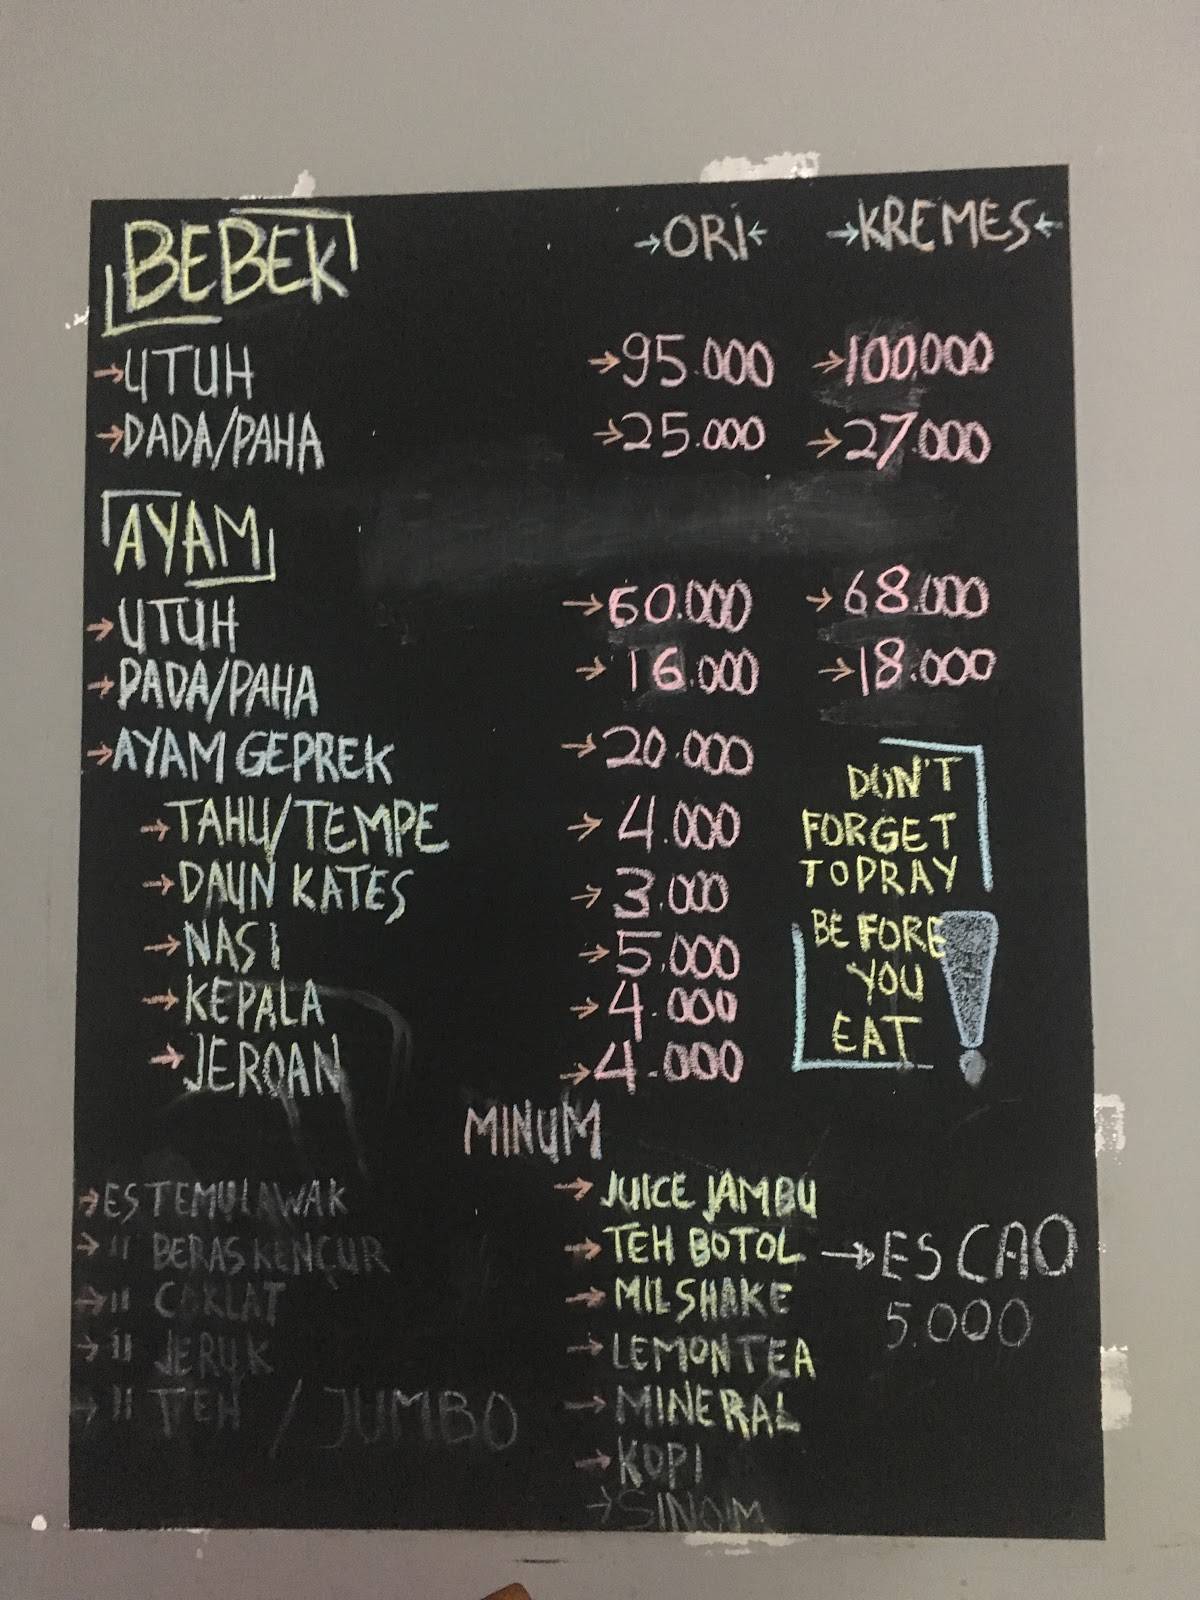 BEBEK →ORI← →KREMES←
→UTUH →95.000 →100.000
→DADA/PAHA →25.000 →27.000
AYAM
→UTUH →60.000 →68.000
→DADA/PAHA →16.000 →18.000
→AYAM GEPREK →20.000
→TAHU/TEMPE →4.000
→DAUN KATES →3.000
→NASI →5.000
→KEPALA →4.000
→JEROAN →4.000
DON'T
FORGET
TO PRAY
BEFORE
YOU
EAT !
MINUM
→ES TEMULAWAK
→" BERAS KENCUR
→" COKLAT
→" JERUK
→" TEH / JUMBO
→JUICE JAMBU
→TEH BOTOL
→MILSHAKE
→LEMON TEA
→MINERAL
→KOPI
→SINOM
→ES CAO
5.000